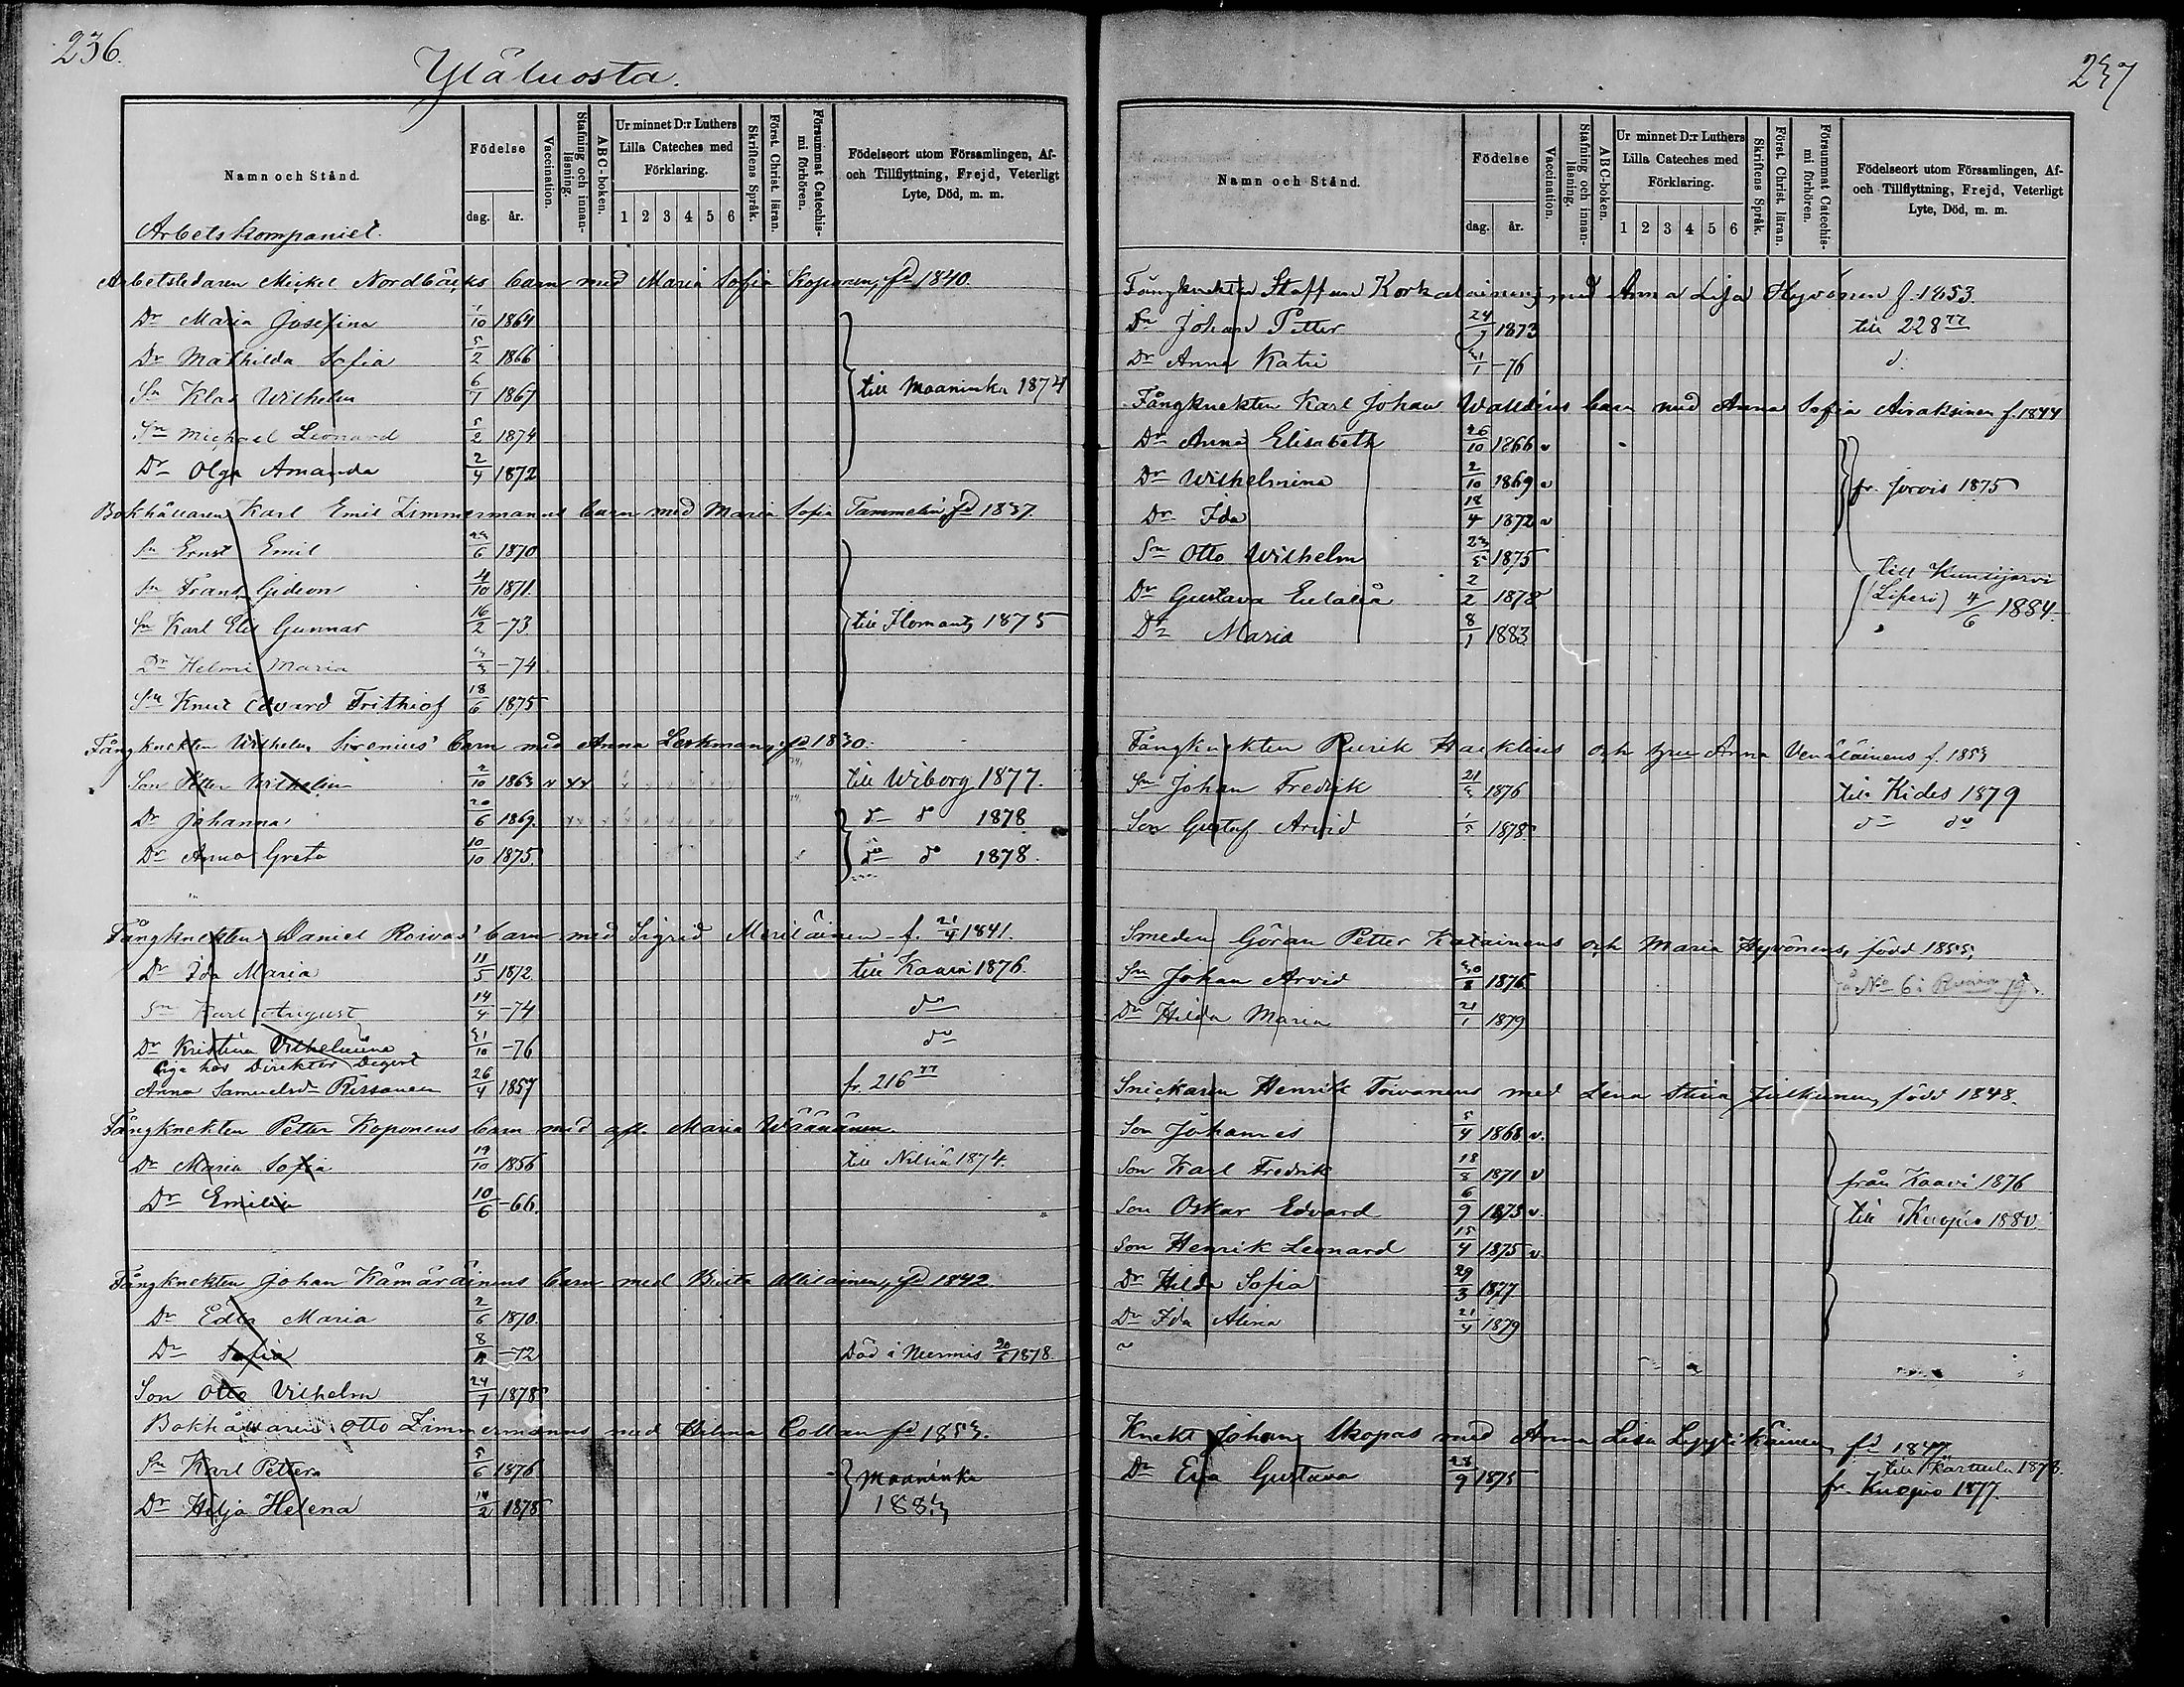 236.
Yläluosta.
Namn och Stånd.
Födelse
dag. år.
Vaccination.
Stafning och innanläsning.
ABC-boken.
Ur minnet D:r Luthers Lilla Cateches med Förklaring.
1 2 3 4 5 6
Skriftens Språk.
Först. Christ. läran.
Försummat Catechismi förhören.
Födelseort utom Församlingen, Af- och Tillflyttning, Frejd, Veterligt Lyte, Död, m. m.
Arbetskompaniet.
Arbetsledaren Mickel Nordbäcks barn med Maria Sofia Koponen, fd 1840.
Dr Maria Josefina 1/10 1864
Dr Mathilda Sofia 5/2 1866
Sn Klas Wilhelm 6/7 1867 till Maaninka 1874
Sn Michael Leonard 5/2 1874
Dr Olga Amanda 2/4 1872
Bokhållaren Karl Emil Zimmermanns barn med Maria Sofia Tammelin fd 1837.
Sn Ernst Emil 23/6 1870
Sn Frans Gideon 4/10 1871.
Sn Karl Elis Gunnar 16/2 -73 till Ilomants 1875
Dr Helmi Maria 3/3 -74
Sn Knut Edvard Frithiof 18/6 1875
Fångknekten Wilhelm Sirenius' barn med Anna Leskmann fd 1830.
Son Petter Wilhelm 2/10 1863 till Wiborg 1877.
Dr Johanna 20/6 1869. do do 1878
Dr Anna Greta 10/10 1875. do do 1878.
Fångknekten Daniel Roivas' barn med Sigrid Meriläinen f. 21/4 1841.
Dr Ida Maria 11/5 1872 till Kaavi 1876.
Sn Karl August 14/4 -74 do
Dr Kristina Vilhelmina 31/10 -76 do
Piga hos Direktor Degert
Anna Samuelsdr Rissanen 26/4 1857 fr. 216 77
Fångknekten Petter Koponens barn med afl. Maria Wäänänen
Dr Maria Sofia 19/10 1856 till Nilsiä 1874.
Dr Emilia 10/6 -66.
Fångknekten Johan Kämäräinens barn med Brita Ollilainen, fd 1842.
Dr Edla Maria 2/6 1870.
Dr Sofia 8/ -72 Död i Nurmis 20/6 1878.
Son Otto Vilhelm 24/7 1878
Bokhållaren Otto Zimmermanns med Hilma Collan fd 1853.
Sn Karl Petter 5/6 1876 Maaninka
Dr Hilja Helena 14/2 1878 1883
237
Namn och Stånd.
Födelse
dag. år.
Vaccination.
Stafning och innanläsning.
ABC-boken.
Ur minnet D:r Luthers Lilla Cateches med Förklaring.
1 2 3 4 5 6
Skriftens Språk.
Först. Christ. läran.
Försummat Catechismi förhören.
Födelseort utom Församlingen, Af- och Tillflyttning, Frejd, Veterligt Lyte, Död, m. m.
Fångknekten Staffan Korkalainens med Anna Lisa Hyvönen f. 1853.
Sn Johan Petter 24/7 1873 till 228 77
Dr Anna Katri 31/1 -76 d.
Fångknekten Karl Johan Walldéns barn med Anna Sofia Airaksinen f. 1844
Dr Anna Elisabeth 26/10 1866 v
Dr Wilhelmina 2/10 1869 v fr. Jorois 1875
Dr Ida 18/4 1872 v
Sn Otto Wilhelm 23/5 1875
till Kuusjärvi
Dr Gustava Eulalia 2/2 1878 (Liperi) 4/6 1884.
Dr Maria 8/1 1883 "
Fångknekten Rurik Haeklins och hru Anna Venäläinens f. 1853
Sn Johan Fredrik 21/3 1876 till Kides 1879
Son Gustaf Arvid 1/5 1878. do do
Smeden Göran Petter Kataineus och Maria Hyvönens, född 1855,
Sn Johan Arvid 30/8 1876 No 6 i
Dr Hilda Maria 21/1 1879
Snickaren Henrik Toivanens med Lena Stina Julkunen, född 1848.
Son Johannes 5/4 1868 v.
Son Karl Fredrik 18/8 1871 v från Kaavi 1876
Son Oskar Edvard 6/9 1873 v. till Kuopio 1880
Son Henrik Leonard 15/4 1875 v
Dr Hilda Sofia 29/3 1877
Dr Ida Alina 21/4 1879
Knekt Johan Skopas med Anna Lisa Lyytikäinen, fd 1847
till Karttula 1878.
Dr Eva Gustava 28/9 1875 fr. Kuopio 1877.